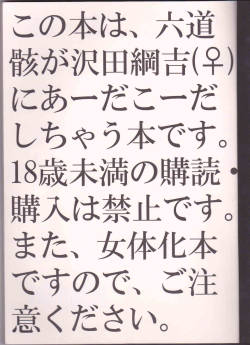 この本は、六道
骸が沢田綱吉(♀)
にあーだこーだ
しちゃう本です。
18歳未満の購読・
購入は禁止です。
また、女体化本
ですので、ご注
意ください。